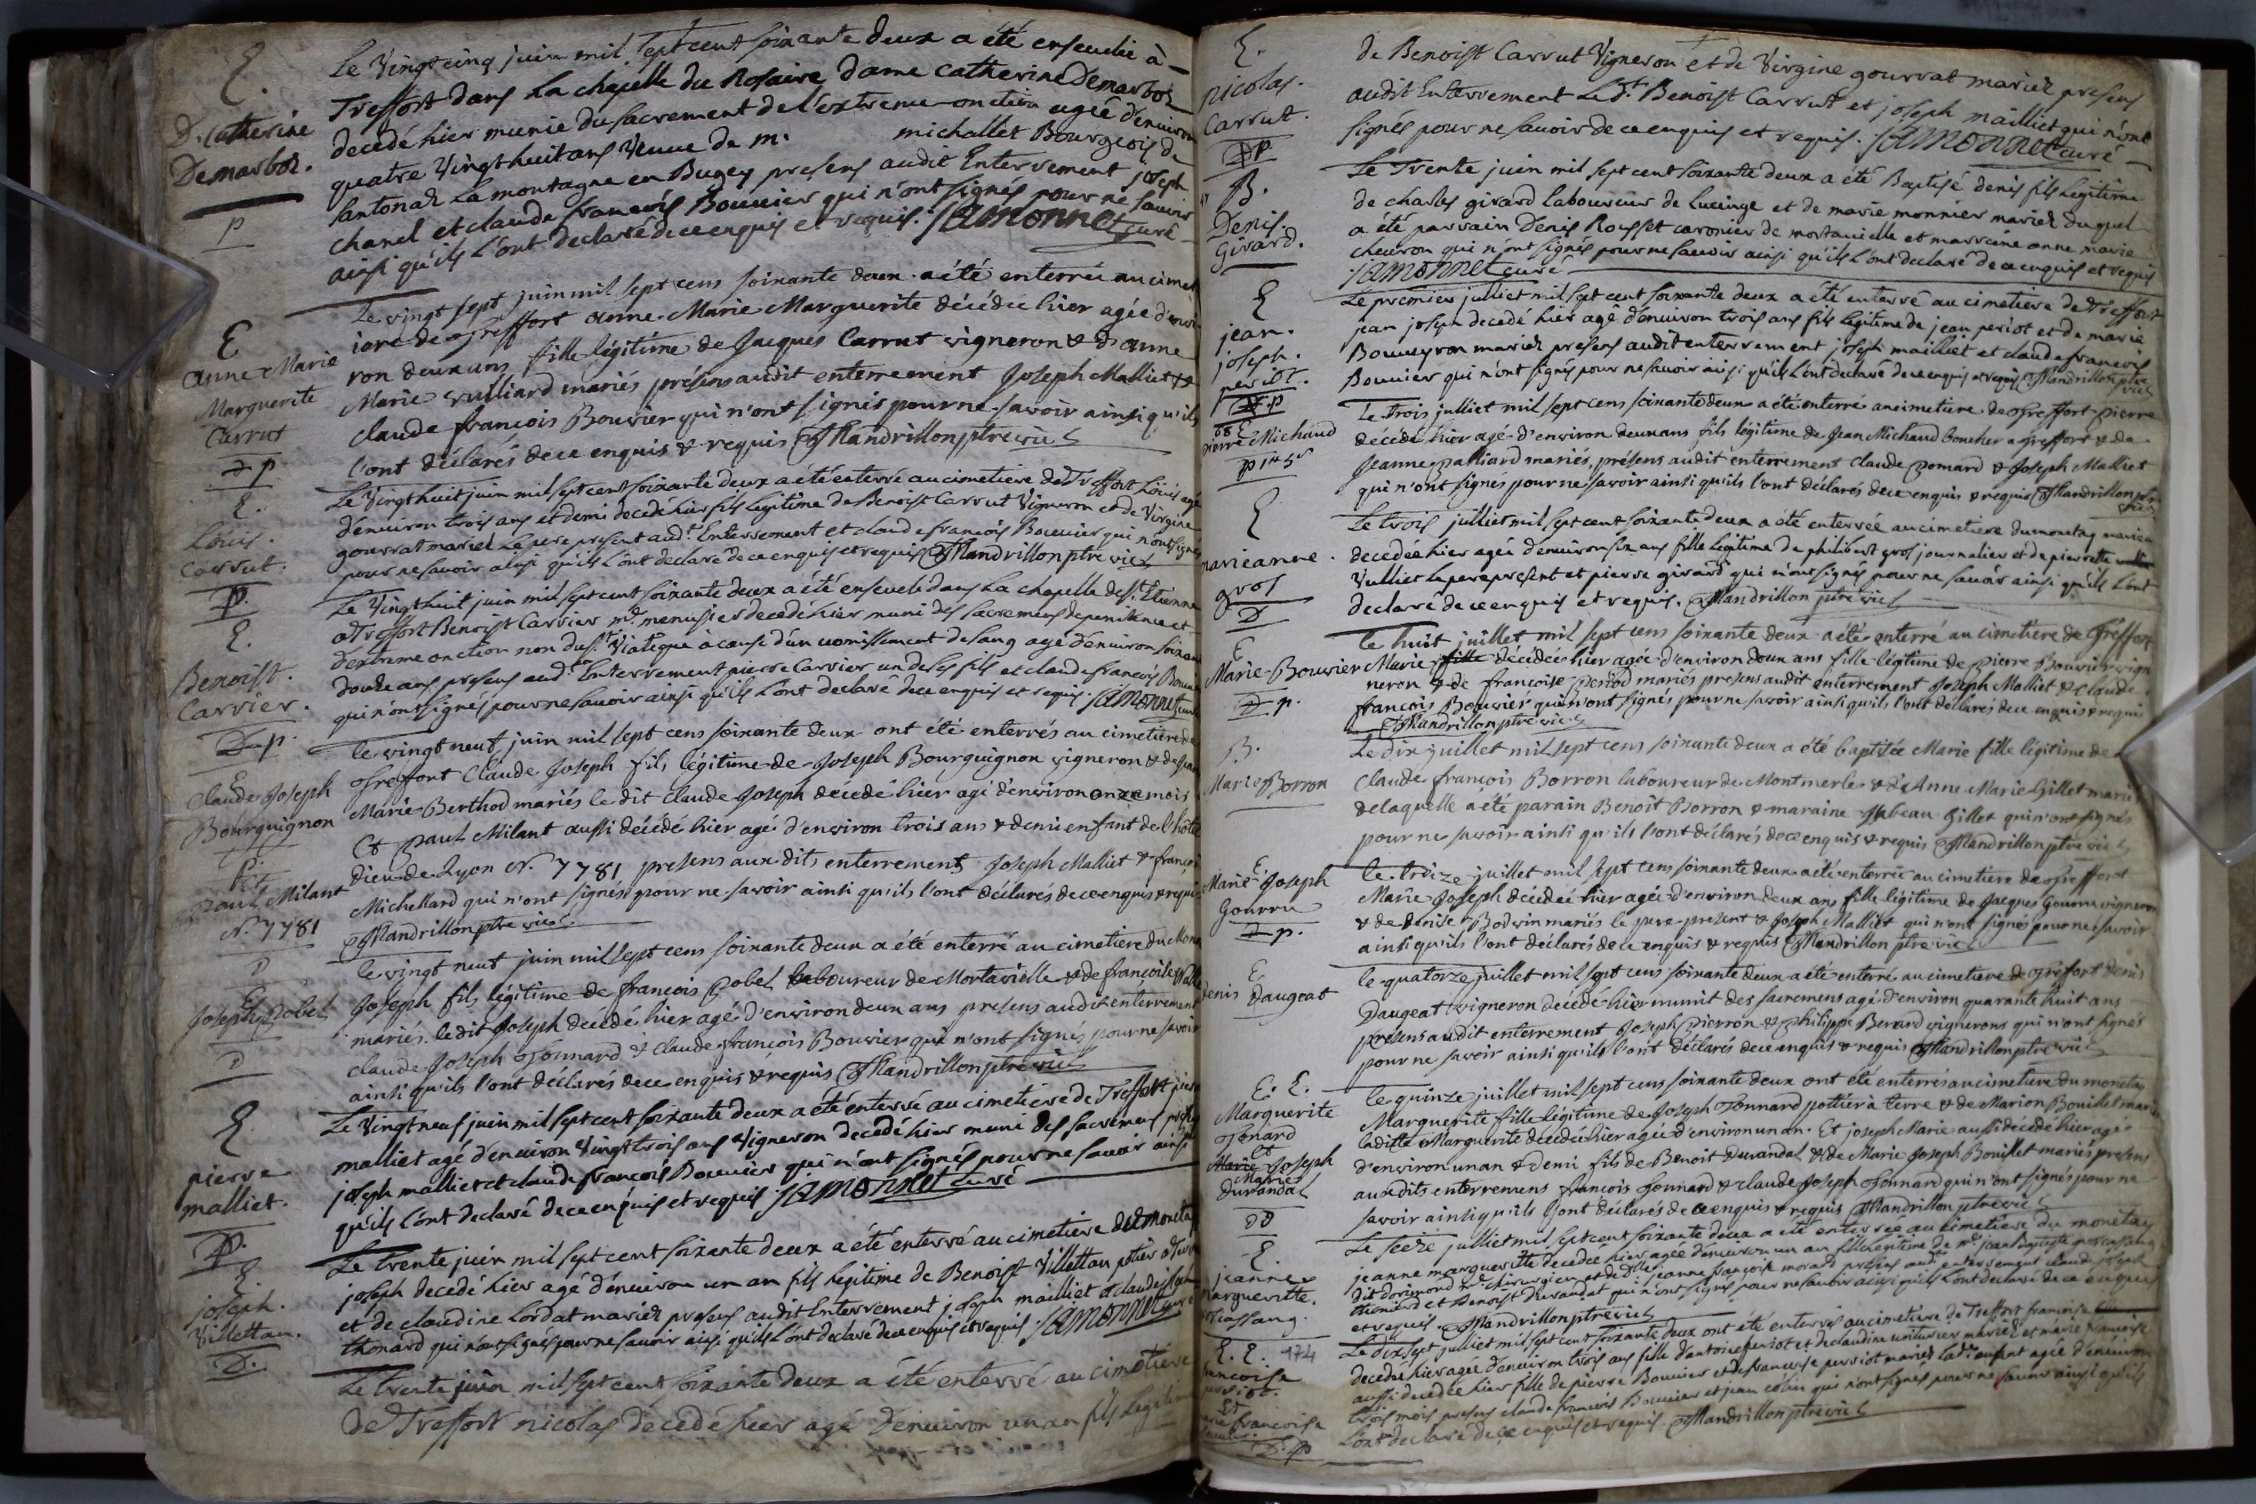 E.
D. Catherine
Demarboz.
p
Le Vingt cinq juin mil sept cent soixante deux a été ensevelie à
Treffort dans La chapelle du Rosaire dame Catherine Demarboz
decedé hier munie du sacrement de l'extreme-onction agée d'environ
quatre Vingt huit ans Veuve de m. michallet Bourgeois de
Santonaz La montagne en Bugey presens audit Enterrement joseph
chanel et claude françois Bouuier qui n'ont signés pour ne sauoir
ainsi qu'ils L'ont declaré de ce enquis et requis. Jamonnet curé
E
Anne Marie
Marguerite
Carrut
p
Le vingt sept juin mil sept cens soixante deux a été enterrée au cimet
iere de Treffort Anne-Marie Marguerite décédée hier agée d'envi
ron deux ans fille légitime de Jacques Carrut vigneron & d'Anne
Marie Vulliard mariés présens audit enterrement Joseph Malliet &
claude françois Bouvier qui n'ont signés pour ne savoir ainsi qu'ils
l'ont déclarés de ce enquis & requis Mandrillon ptre vic
E.
Louis.
Carrut.
p.
Le Vingt huit juin mil sept cent soixante deux a été enterré au cimetiere de Treffort Louis agé
d'enuiron trois ans et demi decedé hier fils Legitime de Benoist Carrut Vigneron et de Virgine
gourrat mariez Le pere present aud.t Enterrement et claude françois Bouuier qui n'ont signés
pour ne sauoir ainsi qu'ils L'ont declaré de ce enquis et requis Mandrillon ptre vic
E.
Benoist.
Carrier.
D p.
Le Vingt huit juin mil sept cent soixante deux a été enseueli dans La chapelle de St. Etienne
a Treffort Benoist Carrier m.e menusier decedé hier muni des sacremens de penitence et
d'extreme onction non du St. Viatique à cause d'un uomissement de sang agé d'enuiron soixante
douze ans presens aud.t Enterrement pierre Carrier un de ses fils et claude françois Bouuier
qui n'ont signés pour ne sauoir ainsi qu'ils L'ont declaré de ce enquis et requis. Jamonnet curé
E
Claude Joseph
Bourguignon
Et
Paul Milant
N.° 7781
D
Le vingt neuf juin mil sept cens soixante deux ont été enterrés au cimetiere de
Treffort Claude Joseph fils légitime de Joseph Bourguignon vigneron & de Jeanne
Marie Berthod mariés le dit Claude Joseph décédé hier agé d'environ onze mois
Et Paul Milant aussi décédé hier agé d'environ trois ans & demi enfant de l'hôtel
Dieu de Lyon N.° 7781 présens aux dits enterremens Joseph Malliet & françois
Michellard qui n'ont signés pour ne savoir ainsi qu'ils l'ont déclarés de ce enquis & requis
Mandrillon ptre vic.
E
Joseph Pobel
D
Le vingt neuf juin mil sept cens soixante deux a été enterré au cimetiere du Mon
Joseph fils légitime de françois Pobel laboureur de Mortavielle & de françoise
mariés. ledit Joseph décédé hier agé d'environ deux ans présens audit enterrement
claude Joseph Thonnard & Claude françois Bouvier qui n'ont signés pour ne savoir
ainsi qu'ils l'ont déclarés de ce enquis & requis Mandrillon ptre vic
E
pierre
malliet.
p.
Le Vingt neuf juin mil sept cent soixante deux a été enterré au cimetiere de Treffort pierre
malliet agé d'enuiron Vingt trois ans Vigneron decedé hier muni des sacremens presens
joseph malliet et claude françois Bouuier qui n'ont signés pour ne sauoir ainsi
qu'ils L'ont declaré de ce enquis et requis Jamonnet curé
E.
joseph.
Villettan.
D.
Le trente juin mil sept cent soixante deux a été enterré au cimetiere du monetay
joseph decedé hier agé d'enuiron un an fils Legitime de Benoist Villettan potier à terre
et de claudine Lordat mariez presens audit Enterrement joseph mailliet et claude joseph
thonard qui n'ont signés pour ne sauoir ainsi qu'ils L'ont declaré de ce enquis et requis. Jamonnet curé
Le trente juin mil sept cent soixante deux a été enterré au cimetiere
de Treffort nicolas decedé hier agé d'enuiron un an fils Legitime
E.
Nicolas.
Carrut.
p
de Benoist Carrut Vigneron et de Virgine gourrat mariez presens
audit Enterrement Le d.t Benoist Carrut et joseph mailliet qui n'ont
signés pour ne sauoir de ce enquis et requis. Jamonnet curé
B.
Denis.
Girard.
Le Trente juin mil sept cent soixante deux a été Baptisé denis fils Legitime
de charles girard Laboureur de Lucinge et de marie monnier mariez duquel
a été parrain Denis Rousset caronier de mortauielle et marraine anne marie
cheuron qui n'ont signés pour ne sauoir ainsi qu'ils L'ont declaré de ce enquis et requis
Jamonnet curé
E
jean.
joseph.
periot.
p
Le premier julliet mil sept cent soixante deux a été enterré au cimetiere de Treffort
jean joseph decedé hier agé d'enuiron trois ans fils Legitime de jean periot et de marie
Bouueyron mariez presens audit enterrement joseph mailliet et claude françois
Bouuier qui n'ont signés pour ne sauoir ainsi qu'ils L'ont declaré de ce enquis et requis Mandrillon ptre
vic
68 E
Pierre Michaud
p
Le trois julliet mil sept cens soixante deux a été enterré au cimetiere de Treffort Pierre
décédé hier agé d'environ deux ans fils légitime de Jean Michaud boucher a Treffort & de
Jeanne Palliard mariés, présens audit enterrement Claude Pomard & Joseph Malliet
qui n'ont signés pour ne savoir ainsi qu'ils l'ont déclarés de ce enquis & requis Mandrillon ptre
vic
E
marieanne.
grof
D
Le trois julliet mil sept cent soixante deux a été enterrée au cimetiere du monetay marieanne
decedée hier agée d'enuiron six ans fille Legitime de philibert grof journalier et de pierrette
Vulliet Le pere present et pierre girard qui n'ont signés pour ne sauoir ainsi qu'ils L'ont
declaré de ce enquis et requis. Mandrillon ptre vic
E
Marie Bouvier
D p.
Le huit juillet mil sept cens soixante deux a été enterré au cimetiere de Treffort
Marie fille décédée hier agée d'environ deux ans fille légitime de Pierre Bouvier vign
neron & de françoise Périod mariés présens audit enterrement Joseph Malliet & Claude
françois Bouvier qui n'ont signés pour ne savoir ainsi qu'ils l'ont déclarés de ce enquis & requis
Mandrillon ptre vic
B.
Marie Borron
Le dix juillet mil sept cens soixante deux a été baptisée Marie fille légitime de
Claude françois Borron laboureur de Montmerle & de Anne Marie Gillet mariés
de laquelle a été parain Benoit Borron & maraine Isabeau Gillet qui n'ont signés
pour ne savoir ainsi qu'ils l'ont déclarés de ce enquis & requis Mandrillon ptre vic
E
Marie Joseph
Gourru
D p.
Le treize juillet mil sept cens soixante deux a été enterrée au cimetiere de Treffort
Marie Joseph décédée hier agée d'environ deux ans fille légitime de Jacques Gourru vigneron
& de Denise Bodvin mariés le pere présent & Joseph Malliet qui n'ont signés pour ne savoir
ainsi qu'ils l'ont déclarés de ce enquis & requis Mandrillon ptre vic
E
Denis Daugeat
Le quatorze juillet mil sept cens soixante deux a été enterré au cimetiere de Treffort Denis
Daugeat vigneron décédé hier munit des sacremens agé d'environ quarante huit ans
présens audit enterrement Joseph Pierron & Philippe Berard vignerons qui n'ont signés
pour ne savoir ainsi qu'ils l'ont déclarés de ce enquis & requis Mandrillon ptre vic
E. E.
Marguerite
Thonard
et
Marie Joseph
Marie
Durandal
D D
Le quinze juillet mil sept cens soixante deux ont été enterrés au cimetiere du monetay
Marguerite fille légitime de Joseph Thonnard pottier à terre & de Marion Bouillet mariés
laditte Marguerite décédée hier agée d'environ un an. Et joseph Marie aussi décédé hier agé
d'environ un an & demi fils de Benoit Durandal & de Marie Joseph Bouillet mariés présens
auxdits enterremens françois Thonnard & Claude Joseph Thonnard qui n'ont signés pour ne
savoir ainsi qu'ils l'ont déclarés de ce enquis & requis Mandrillon ptre vic
E.
jeanne
Margueritte.
Le seize julliet mil sept cent soixante deux a été enterrée au cimetiere du monetay
jeanne margueritte decedée hier agée d'enuiron un an fille Legitime de s.r jean Baptiste
dit dorimond m.e chirurgien et de d.lle jeanne françoise morard presens aud.t enterrement claude joseph
thonard et Benoist Durandat qui n'ont signés pour ne sauoir ainsi qu'ils L'ont declaré de ce enquis
et requis Mandrillon ptre vic
E. E. 174
francoise
periot.
Et
marie francoise
Bouuier.
D. p
Le dix sept julliet mil sept cent soixante deux ont été enterrés au cimetiere de Treffort francoise
decedée hier agée d'enuiron trois ans fille d'antoine periot et de claudine mariez et marie francoise
aussi decedée hier fille de pierre Bouuier et de francoise periot mariez lad.te enfant agée d'enuiron
trois mois presens claude francois Bouuier et jean colin qui n'ont signés pour ne sauoir ainsi qu'ils
L'ont declaré de ce enquis et requis. Mandrillon ptre vic